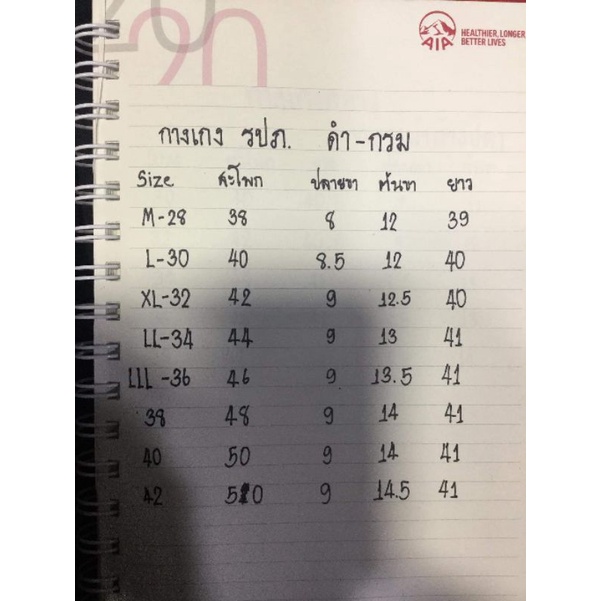 20
20
AIA
HEALTHIER, LONGER,
BETTER LIVES
กางเกง รปภ. ดำ-กรม
Size สะโพก ปลายขา ต้นขา ยาว
M-28 38 8 12 39
L-30 40 8.5 12 40
XL-32 42 9 12.5 40
LL-34 44 9 13 41
LLL-36 46 9 13.5 41
38 48 9 14 41
40 50 9 14 41
42 50 9 14.5 41